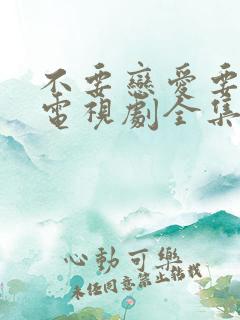 不要戀愛要
電視劇全集
心動可樂
未经同意禁止转载